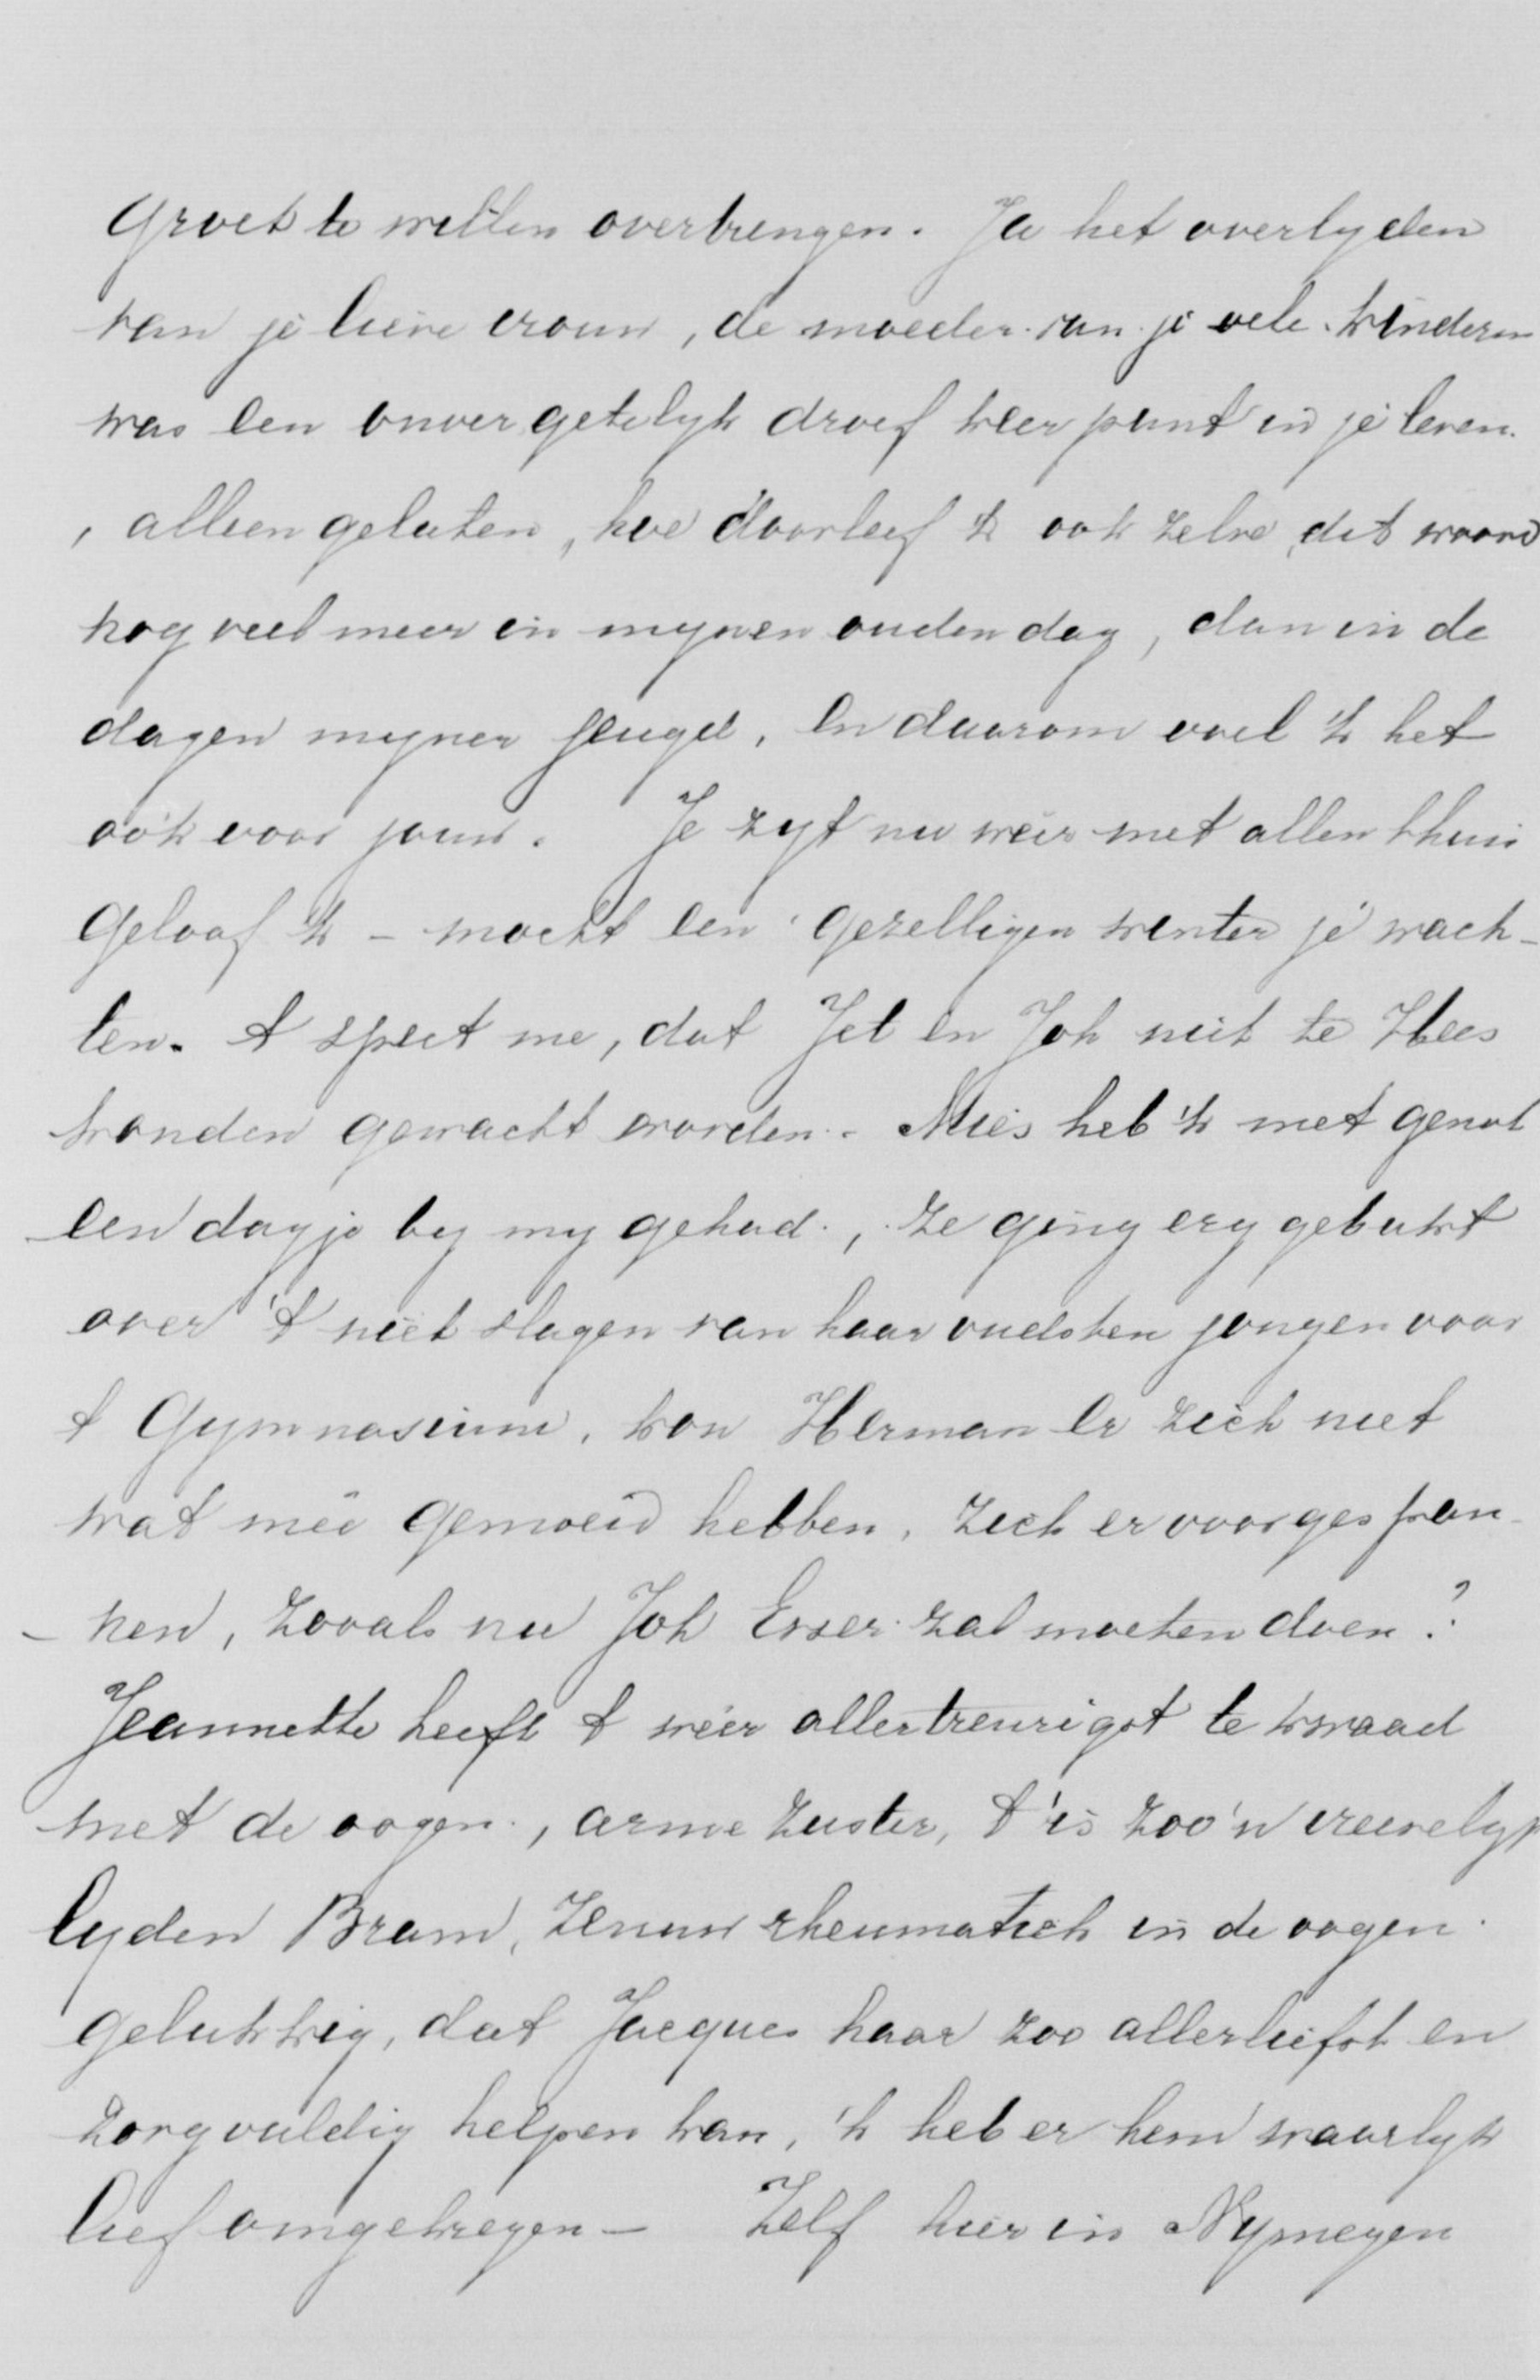 Groet te willen overbrengen. Ja het overlyden
van je lieve vrouw, de moeder van je vele kinderen
was een onvergetelyk droef keerpunt in je leven.
, alleen gelaten, hoe doorleef 'k ook zelve dit woord
nog veel meer in mynen ouden dag, dan in de
dagen myner jeugd, en daarom voel 'k het
ook voor jouw. Je zyt nu wéér met allen thuis
geloof 'k – mocht een gezelligen winter je wach-
ten. t speet me, dat Jet en Joh niet te Hees
konden gewacht worden. Mies heb 'k met genot
een dagje by my gehad, ze ging erg gebukt
over 't niet slagen van haar oudsten jongen voor
t Gymnasium, kon Herman er zich niet
wat mée gemoeid hebben, zich ervoor gespan-
- nen, zooals nu Joh Esser zal moeten doen?
Jeannette heeft t wéér allertreurigst te kwaad
met de oogen, arme zuster, t'is zoo'n vreeselyk
lyden Bram, zenuw rheumatiek in de oogen.
gelukkig, dat Jacques haar zoo allerliefst en
zorgvuldig helpen kan, 'k heb er hem waarlyk
lief omgekregen – Zelf hier in Nymegen